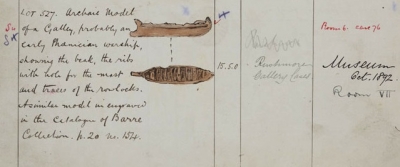 LOT 527. Archaic Model
of a Galley, probably an
early Phœnician warship,
showing the beak, the ribs
with hole for the mast
and traces of the rowlocks.
A similar model is engraved
in the Catalogue of Barre
Collection. p. 20 no. 154.
15.5.0
Gallery Case
Room 6. case 76
Museum
Oct. 1892.
Room VII